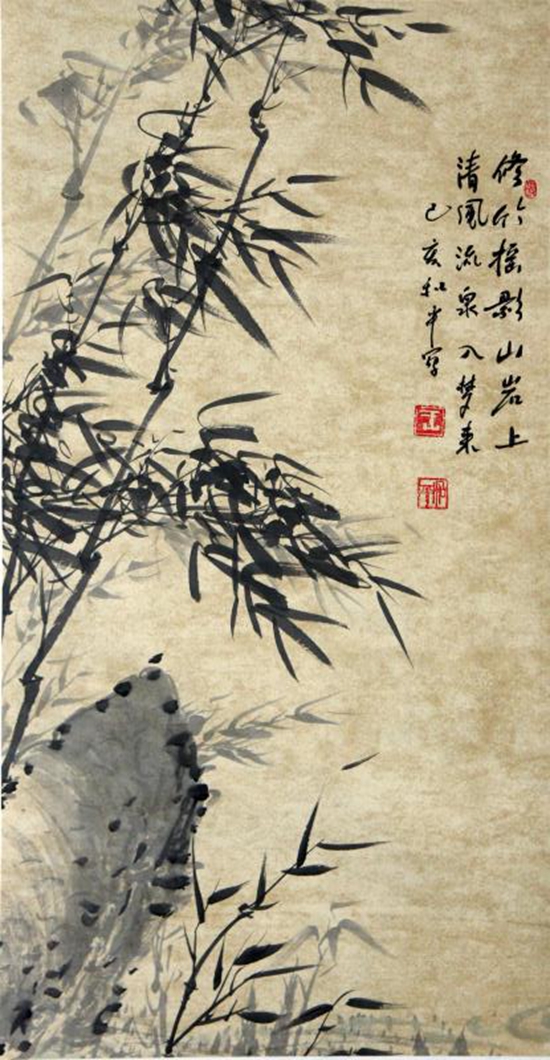 修竹摇影山岩上
清风流泉入梦来
己亥和平写